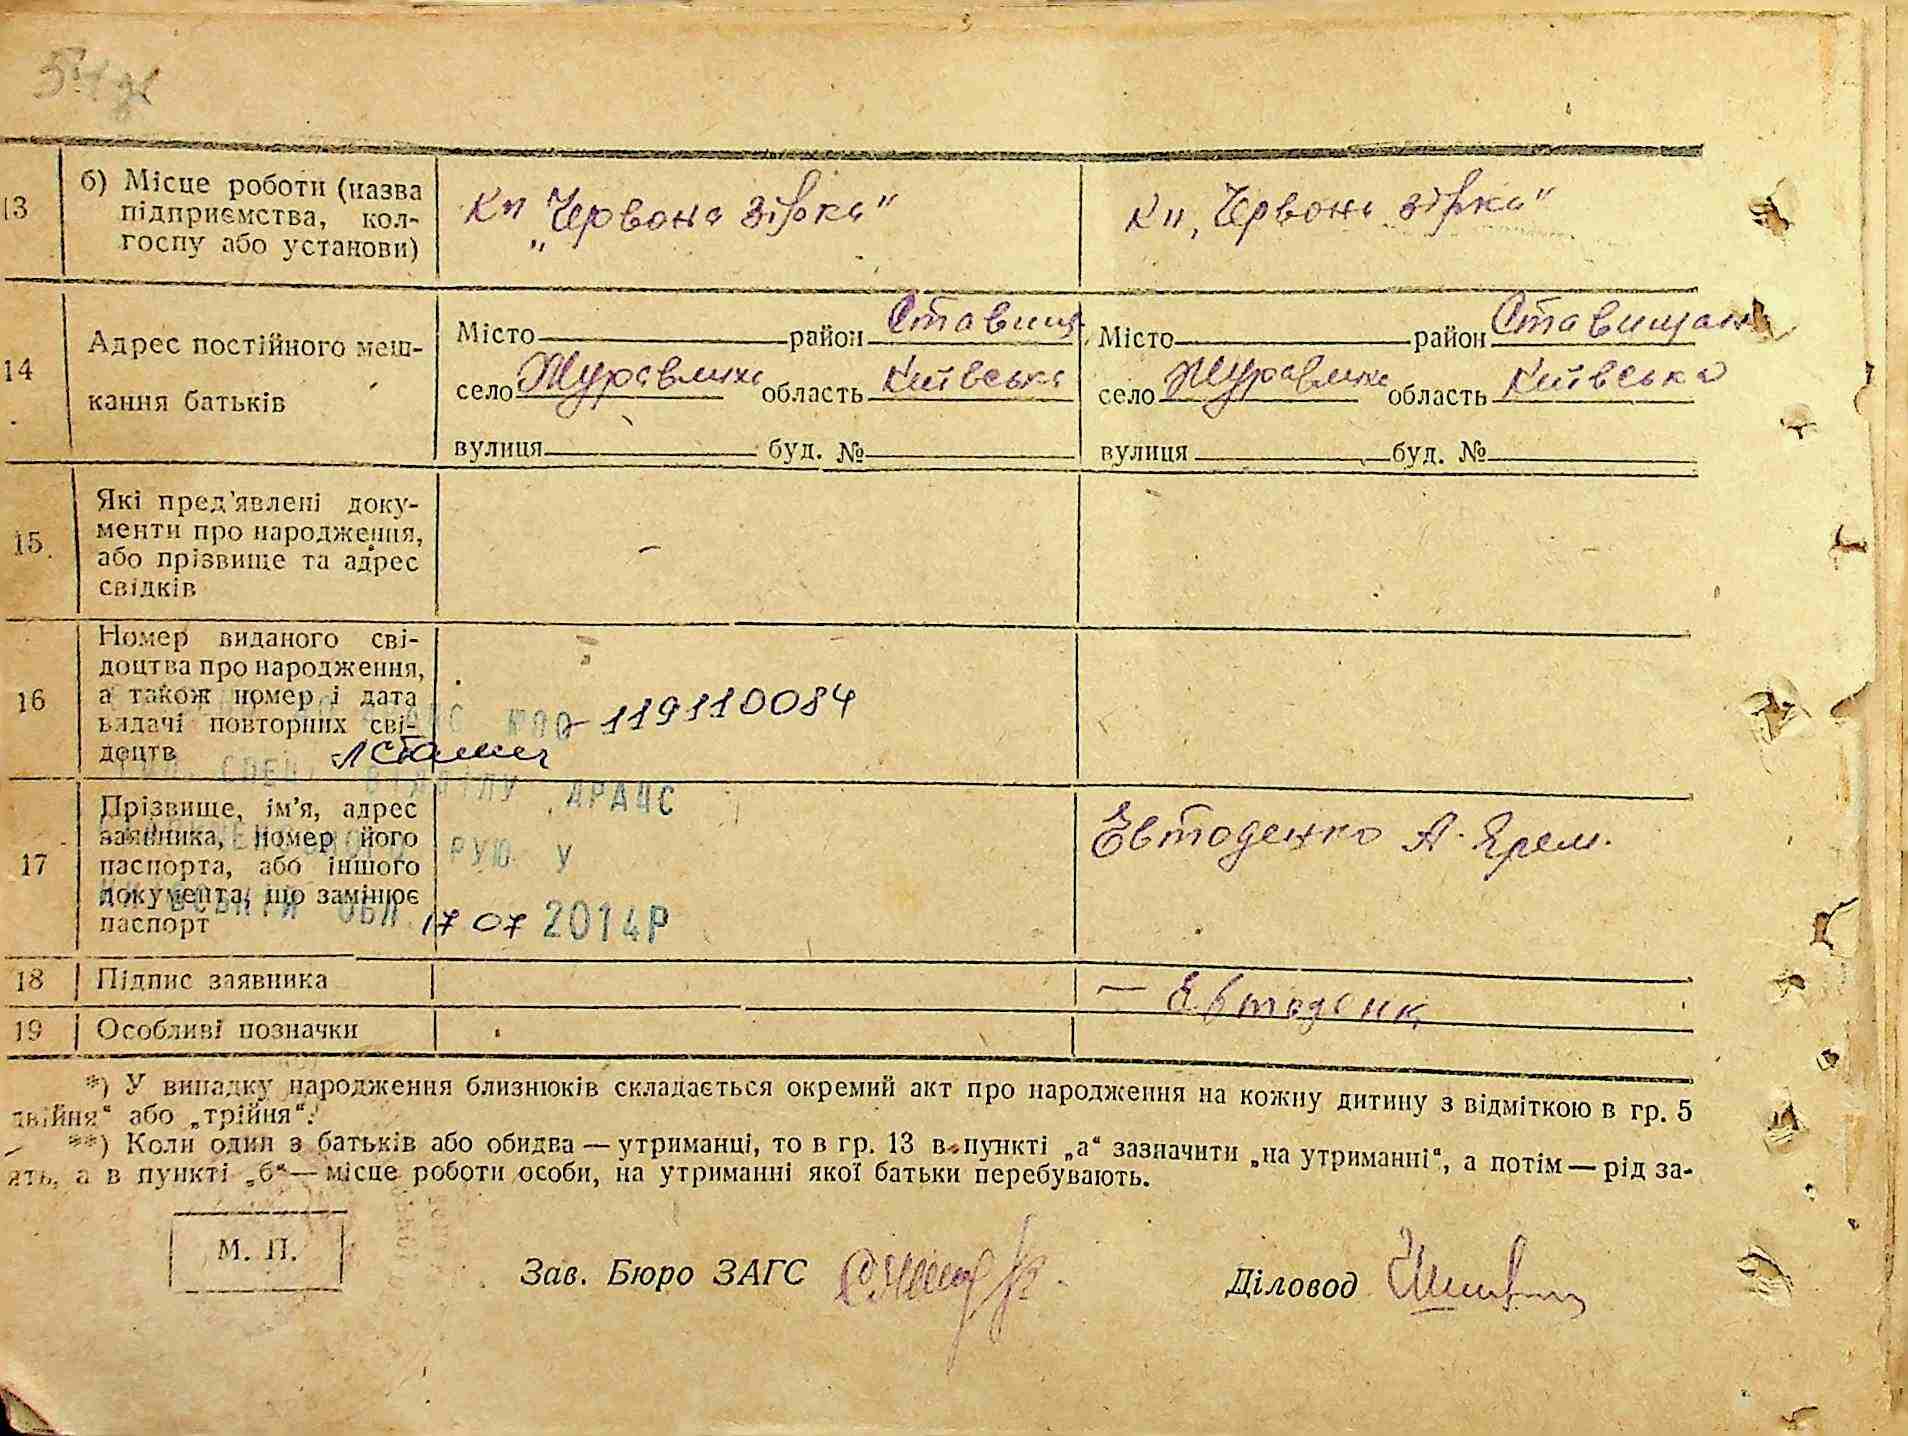 13
б) Місце роботи (назва
підприємства, кол-
госпу або установи)
Кп „Червона зірка“
Кп „Червона зірка“
14
Адрес постійного меш-
кання батьків
Місто район Ставищ.
село Журавлиха область Київська
вулиця буд. №
Місто район Ставищан
село Журавлиха область Київська
вулиця буд. №
15
Які пред'явлені доку-
менти про народження,
або прізвище та адрес
свідків
—
16
Номер виданого сві-
доцтва про народження,
а також номер і дата
видачі повторних сві-
доцтв
119110084
СПЕЦ. ВІДДІЛУ ДРАЦС
РУЮ У
ОБЛ. 17 07 2014Р
17
Прізвище, ім'я, адрес
заявника, номер його
паспорта, або іншого
документа, що замінює
паспорт
Евтоденко А. Ярем.
18
Підпис заявника
— Євтоденк
19
Особливі позначки
*) У випадку народження близнюків складається окремий акт про народження на кожну дитину з відміткою в гр. 5
двійня“ або „трійня“.
**) Коли один з батьків або обидва — утриманці, то в гр. 13 в пункті „а“ зазначити „на утриманні“, а потім — рід за-
ять, а в пункті „б“ — місце роботи особи, на утриманні якої батьки перебувають.
М. П.
Зав. Бюро ЗАГС
Діловод